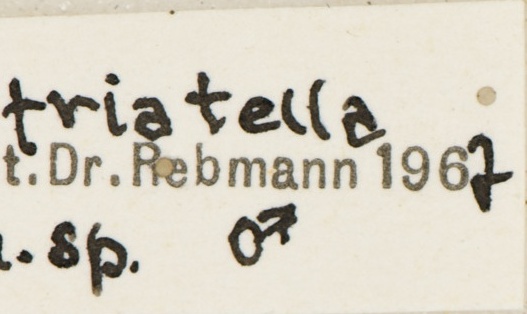 triatella
t.Dr.Rebmann 1967
n.sp. ♂